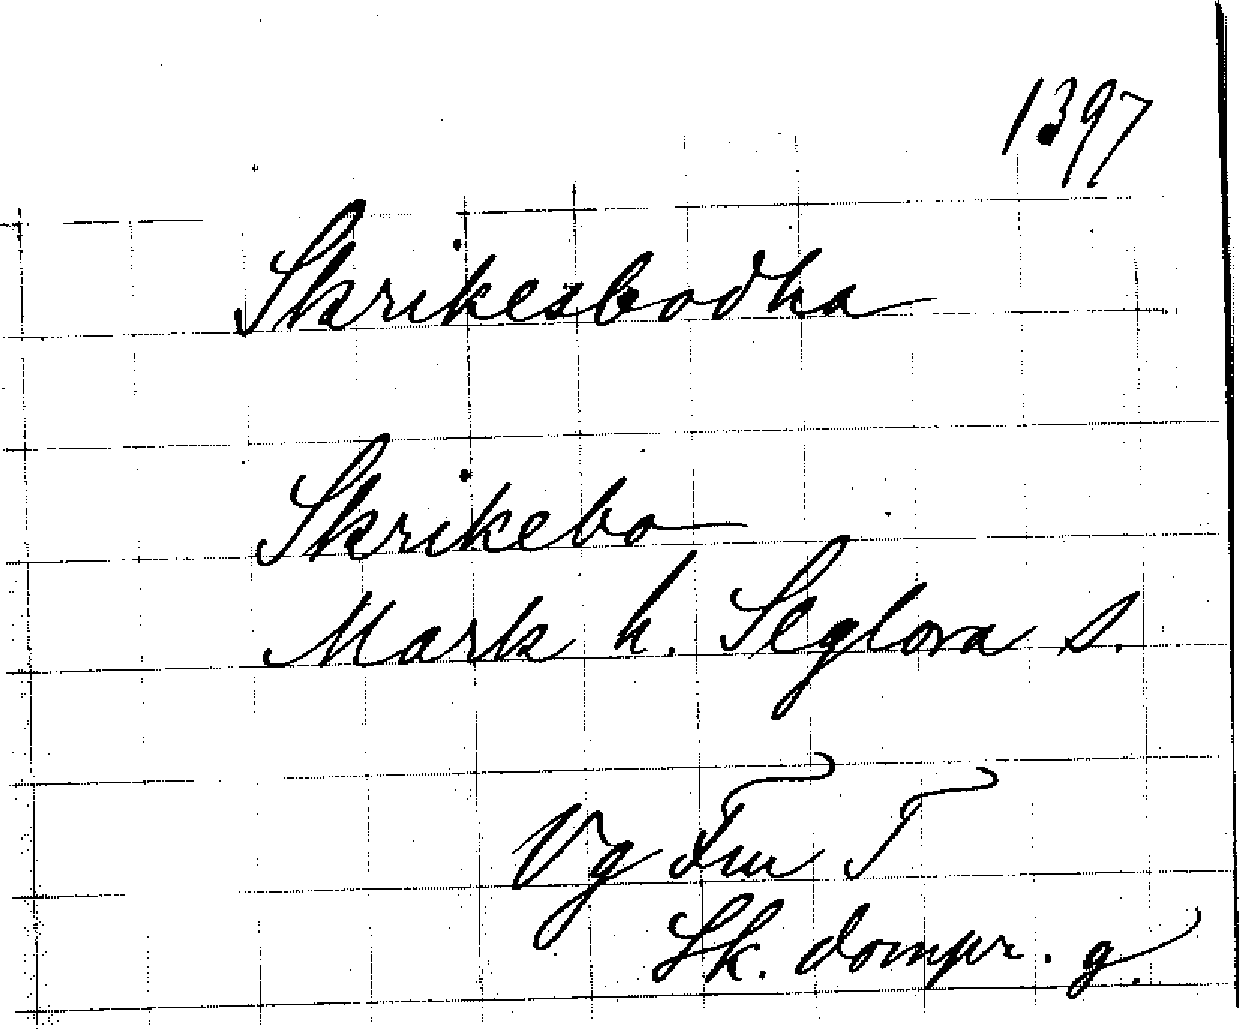 1397
Skrikesbodha
Skrikebo
Mark h. Seglora s.
Vg Fm T
Sk. dompr. g.